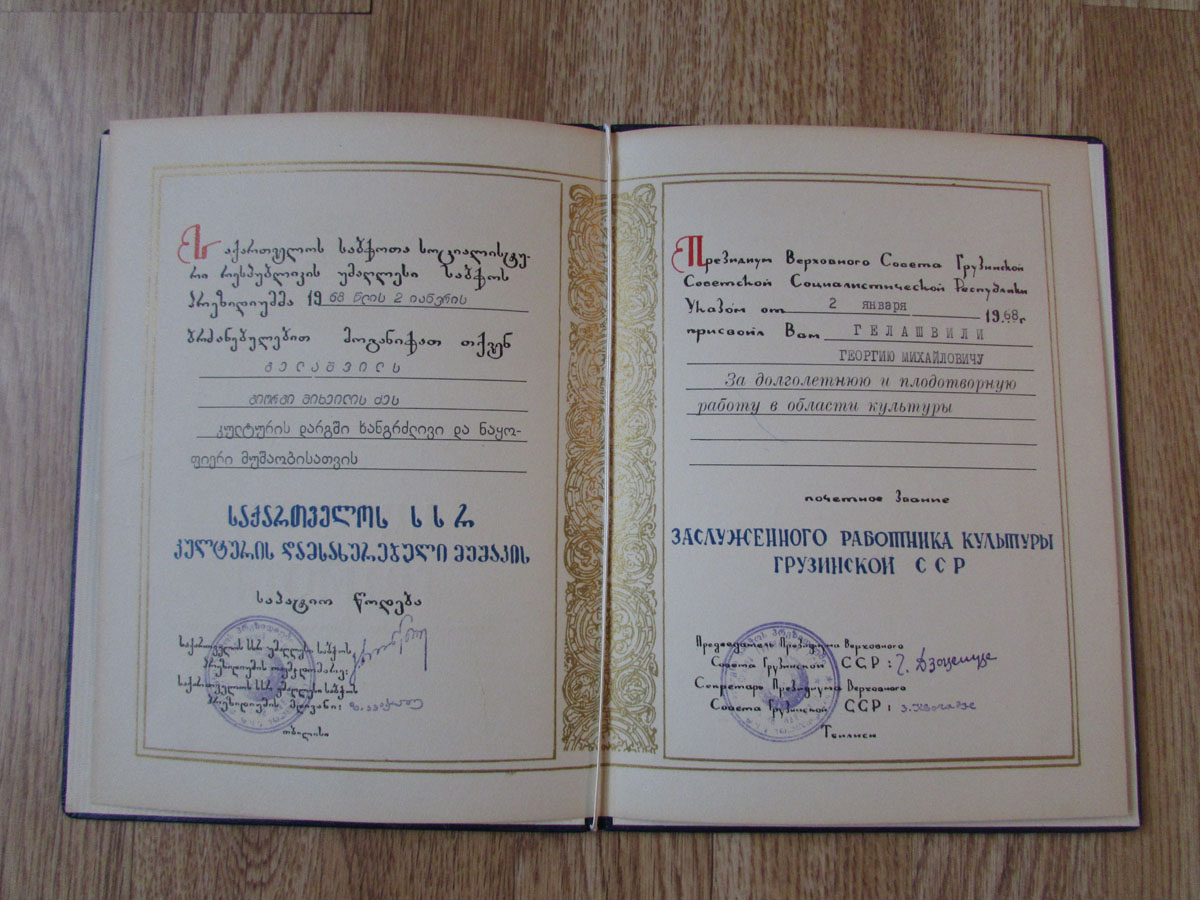 საქართველოს საბჭოთა სოციალისტუ-
რი რესპუბლიკის უმაღლესი საბჭოს
პრეზიდიუმმა 1968 წლის 2 იანვრის
ბრძანებულებით მოგანიჭათ თქვენ
გელაშვილს
გიორგი მიხეილის ძეს
კულტურის დარგში ხანგრძლივი და ნაყო-
ფიერი მუშაობისათვის
საქართველოს სსრ
კულტურის დამსახურებული მუშაკის
საპატიო წოდება
საქართველოს სსრ უმაღლესი საბჭოს
პრეზიდიუმის თავმჯდომარე:
საქართველოს სსრ უმაღლესი საბჭოს
პრეზიდიუმის მდივანი:
თბილისი
Президиум Верховного Совета Грузинской
Советской Социалистической Республики
Указом от 2 января 1968 г
присвоил Вам ГЕЛАШВИЛИ
ГЕОРГИЮ МИХАЙЛОВИЧУ
За долголетнюю и плодотворную
работу в области культуры
почетное звание
ЗАСЛУЖЕННОГО РАБОТНИКА КУЛЬТУРЫ
ГРУЗИНСКОЙ ССР
Председатель Президиума Верховного
Совета Грузинской ССР: Г. Дзоценидзе
Секретарь Президиума Верховного
Совета Грузинской ССР:
Тбилиси